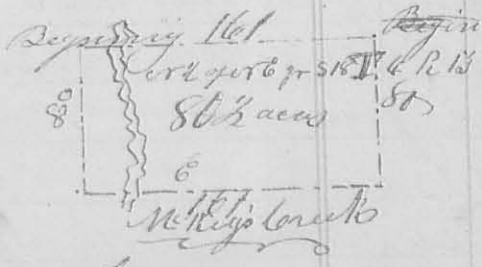 Beginning 161 Begin
N ½ of N E qr S 18 T 4 R 13
80 80½ acres 80
E
161
McKey's Creek